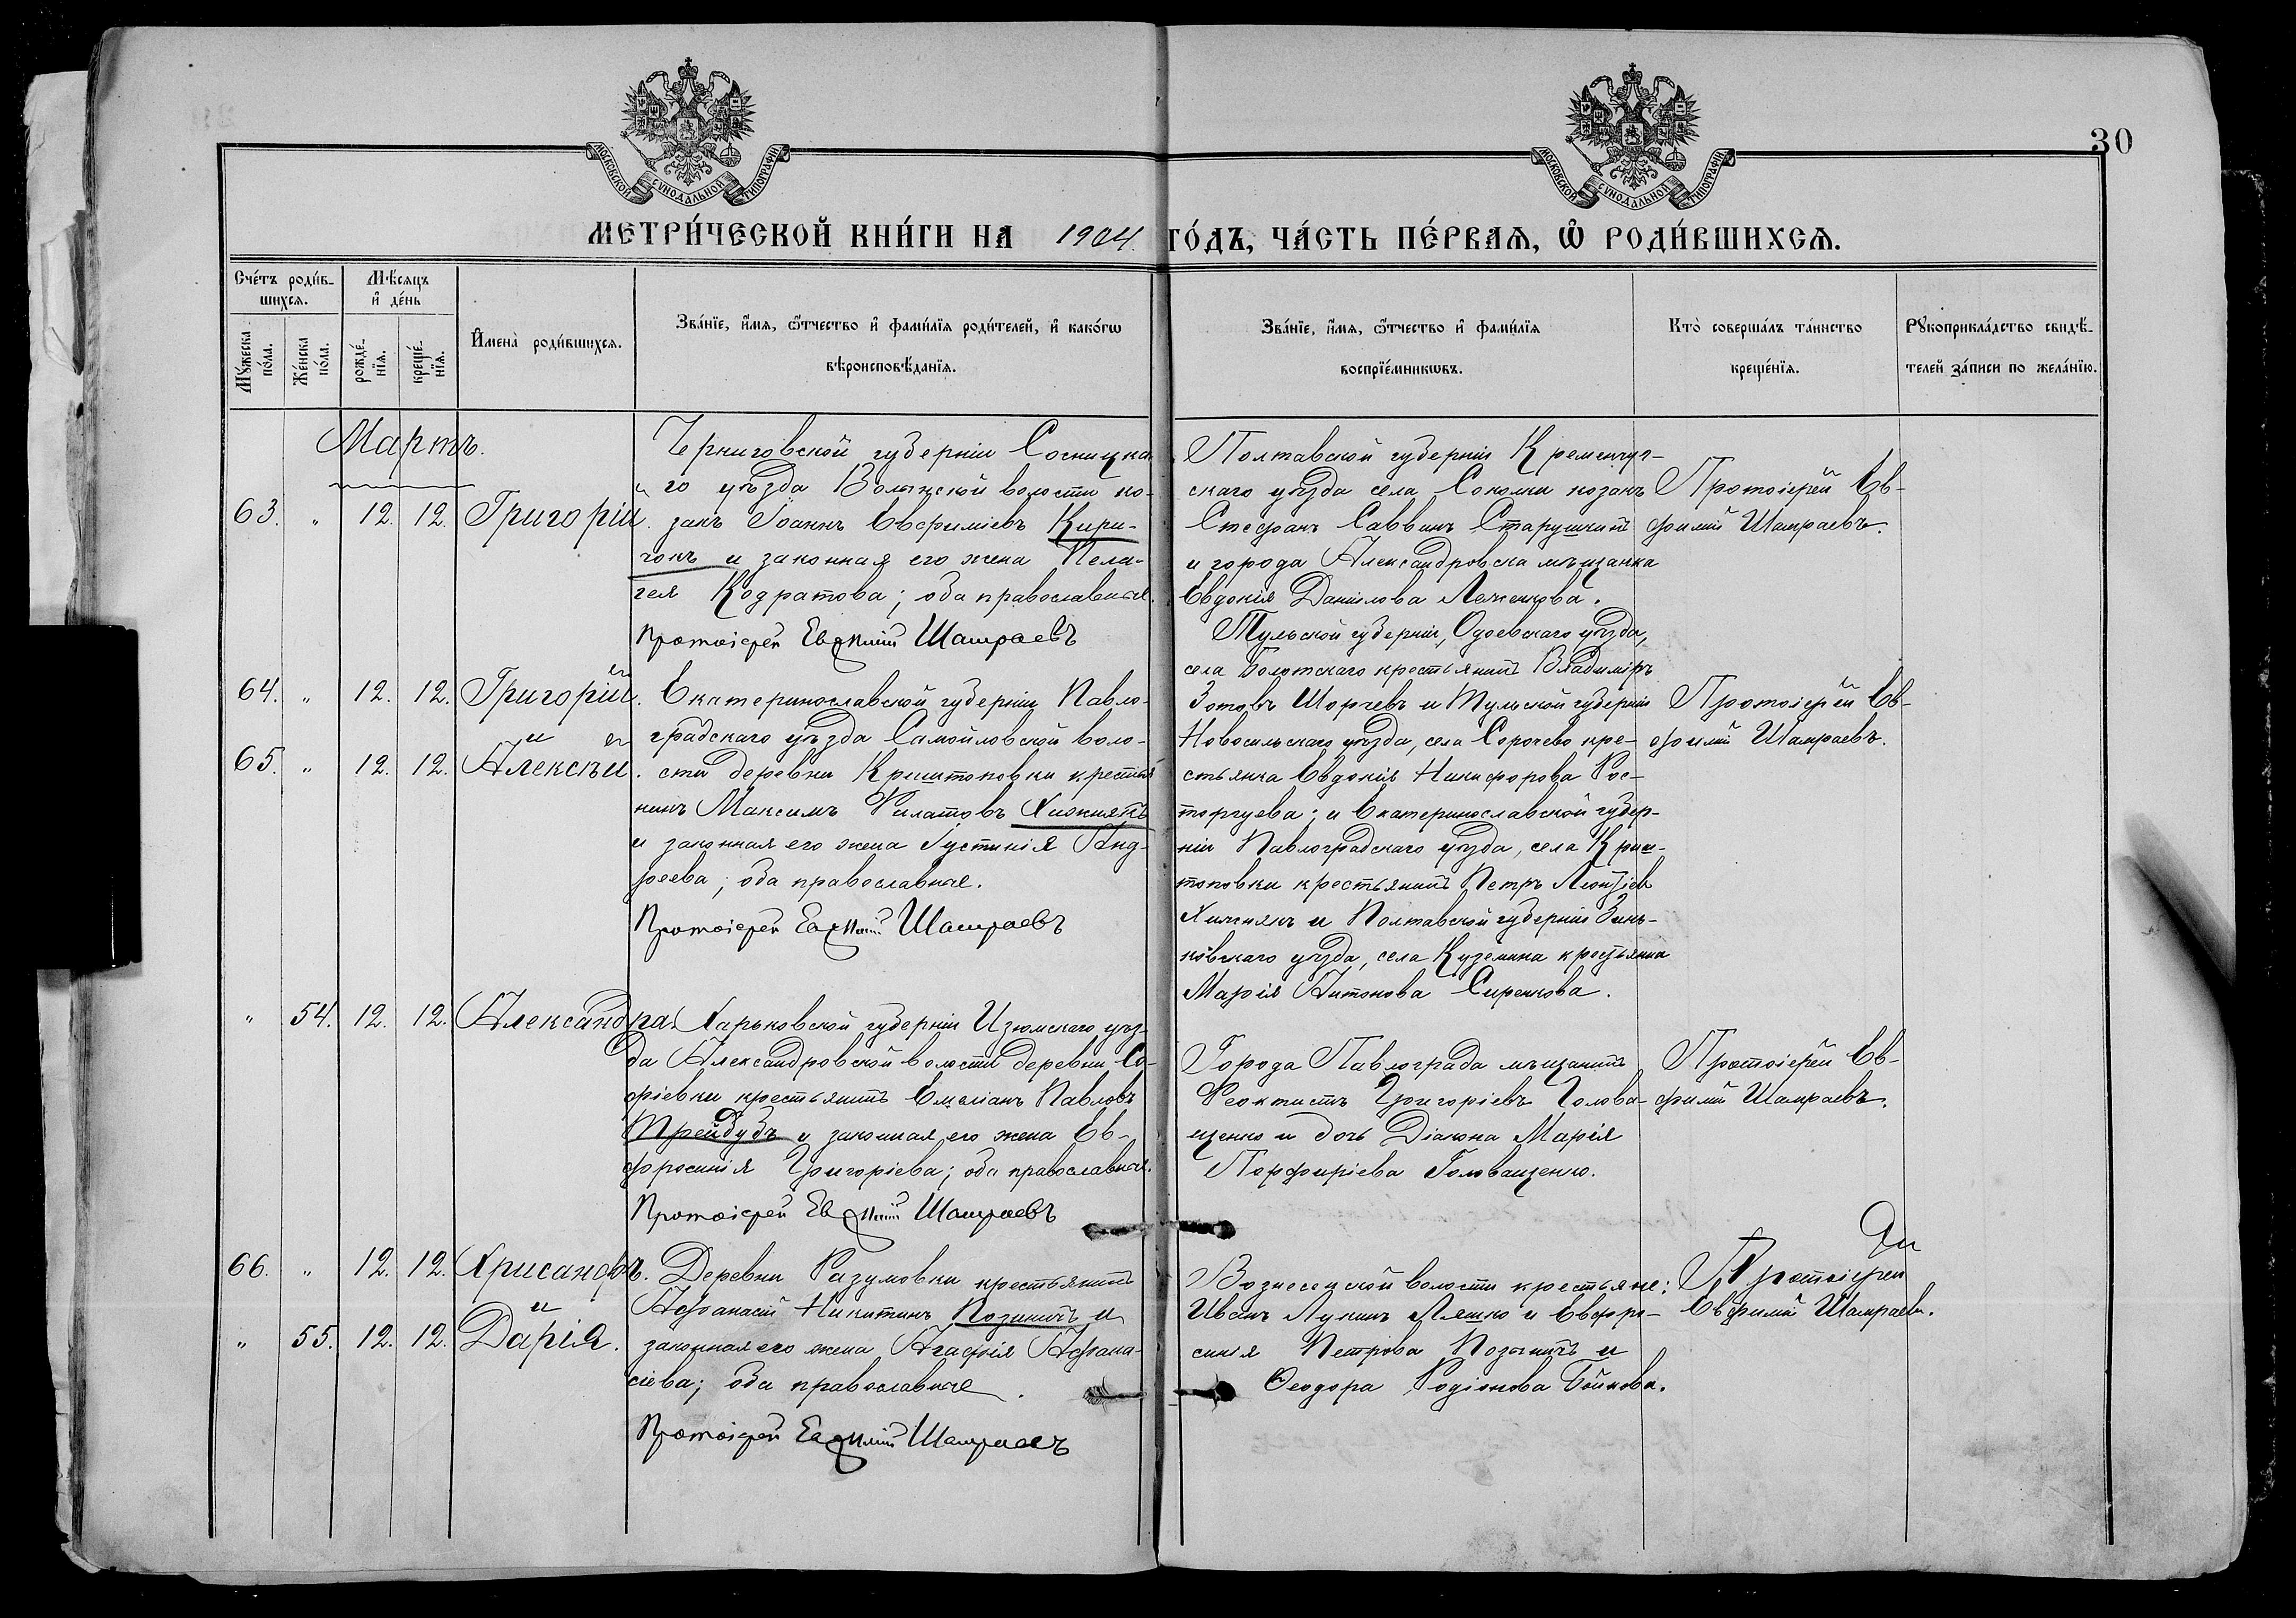 МОСКОВСКОЙ СѴНОДАЛЬНОЙ ТИПОГРАФІИ
МОСКОВСКОЙ СѴНОДАЛЬНОЙ ТИПОГРАФІИ
30
МЕТРИ́ЧЕСКОЙ КНИ́ГИ НА 1904 ГО́ДЪ, ЧА́СТЬ ПЕ́РВАѦ, Ѽ РОДИ́ВШИХСѦ.
Сче́тъ роди́в-
шихсѧ.
Мѣ́сѧцъ
и҆ де́нь
Мꙋ́жеска
по́ла.
Же́нска
по́ла.
рожде́-
нїѧ.
креще́-
нїѧ.
И҆мена̀ роди́вшихсѧ.
Зва́нїе, и҆́мѧ, ѻ҆́тчество и҆ фами́лїѧ роди́телей, и҆ како́гѡ
вѣроисповѣ́данїѧ.
Зва́нїе, и҆́мѧ, ѻ҆́тчество и҆ фами́лїѧ
воспрїе́мникѡвъ.
Кто̀ соверша́лъ та́инство
креще́нїѧ.
Рꙋкоприкла́дство свидѣ́-
телей за́писи по жела́нїю.
Мартъ.
63. " 12. 12. Григорій.
Черниговской губерніи Сосницка
го уѣзда Волынской волости ко-
закъ Іоаннъ Евфиміевъ Кири-
чокъ и законная его жена Пела-
гея Кодратова; оба православные.
Протоіерей Евфимій Шамраевъ
Полтавской губерніи Кременчуг-
скаго уѣзда села Сокомки козакъ
Стефанъ Саввинъ Старушкинъ
и города Александровска мѣщанка
Евдокія Данилова Леженкова.
Протоіерей Ев-
фимій Шамраевъ.
64. " 12. 12. Григорій
и
65. " 12. 12. Алексѣй.
Екатеринославской губерніи Павло-
градскаго уѣзда Самойловской воло-
сти деревни Криштоповки крестья
нинъ Максимъ Филатовъ Хижнякъ
и законная его жена Іустинія Анд-
реева; оба православные.
Протоіерей Евфимій Шамраевъ
Тульской губерніи, Одоевскаго уѣзда,
села Болотскаго крестьянинъ Владиміръ
Зотовъ Шорчевъ и Тульской губерніи
Новосильскаго уѣзда, села Сорочево кре-
стьянка Евдокія Никифорова Рос-
торгуева; и Екатеринославской губер-
ніи Павлоградскаго уѣзда, села Криш-
топовки крестьянинъ Петръ Леонтіев
Хижнякъ и Полтавской губерніи Зинь-
ковскаго уѣзда, села Куземина крестьянка
Марія Антонова Сиренкова.
Протоіерей Ев-
фимій Шамраевъ.
" 54. 12. 12. Александра.
Харьковской губерніи Изюмскаго уѣз-
да Александровской волости деревни Со-
фіевки крестьянинъ Емеліанъ Павловъ
Трейдубъ и законная его жена Ев-
фросинія Григоріева; оба православные.
Протоіерей Евфимій Шамраевъ
Города Павлограда мѣщанинъ
Феоктистъ Григоріевъ Голова-
щенко и дочь Діакона Марія
Порфиріева Головащенко.
Протоіерей Ев-
фимій Шамраевъ.
66. " 12. 12. Хрисанфъ.
и
" 55. 12. 12. Дарія.
Деревни Разумовки крестьянинъ
Афанасій Никитинъ Позыничъ и
законная его жена Агафія Афана-
сіева; оба православные.
Протоіерей Евфимій Шамраевъ
Вознесенской волости крестьяне:
Иванъ Лукинъ Ляшко и Евфро-
синія Петрова Позыничъ и
Феодора Родіонова Бойкова.
Протоіерей
Евфимій Шамраевъ.